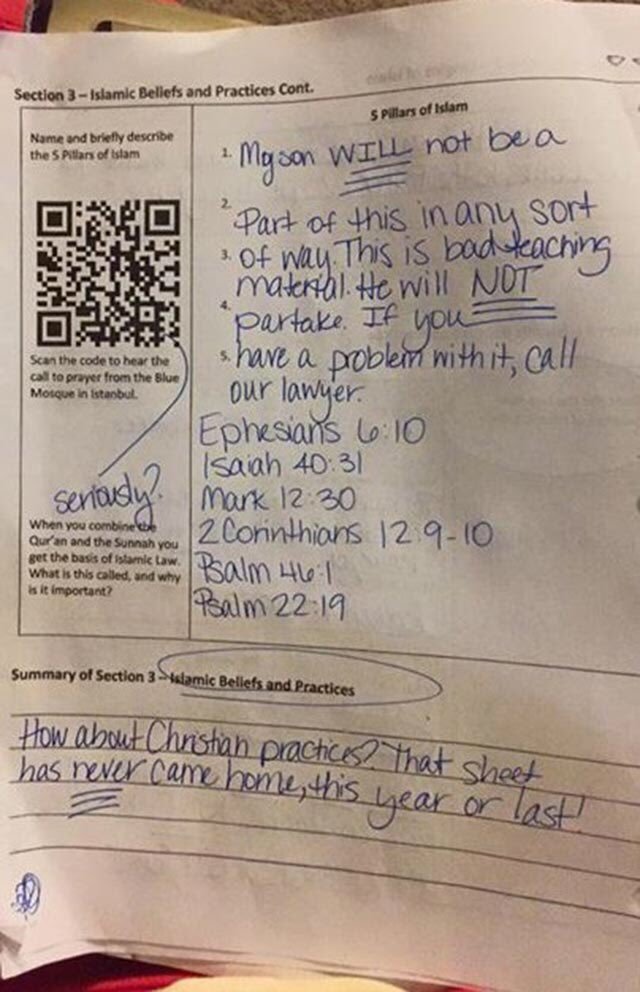 Section 3 – Islamic Beliefs and Practices Cont.
Name and briefly describe
the 5 Pillars of Islam
Scan the code to hear the
call to prayer from the Blue
Mosque in Istanbul.
seriously?
When you combine the
Qur'an and the Sunnah you
get the basis of Islamic Law.
What is this called, and why
is it important?
5 Pillars of Islam
1. My son WILL not be a
2. Part of this in any sort
3. of way. This is bad teaching
material. He will NOT
4. partake. If you
5. have a problem with it, call
our lawyer.
Ephesians 6:10
Isaiah 40:31
Mark 12:30
2 Corinthians 12:9-10
Psalm 46:1
Psalm 22:19
Summary of Section 3 – Islamic Beliefs and Practices
How about Christian practices? That sheet
has never came home, this year or last!